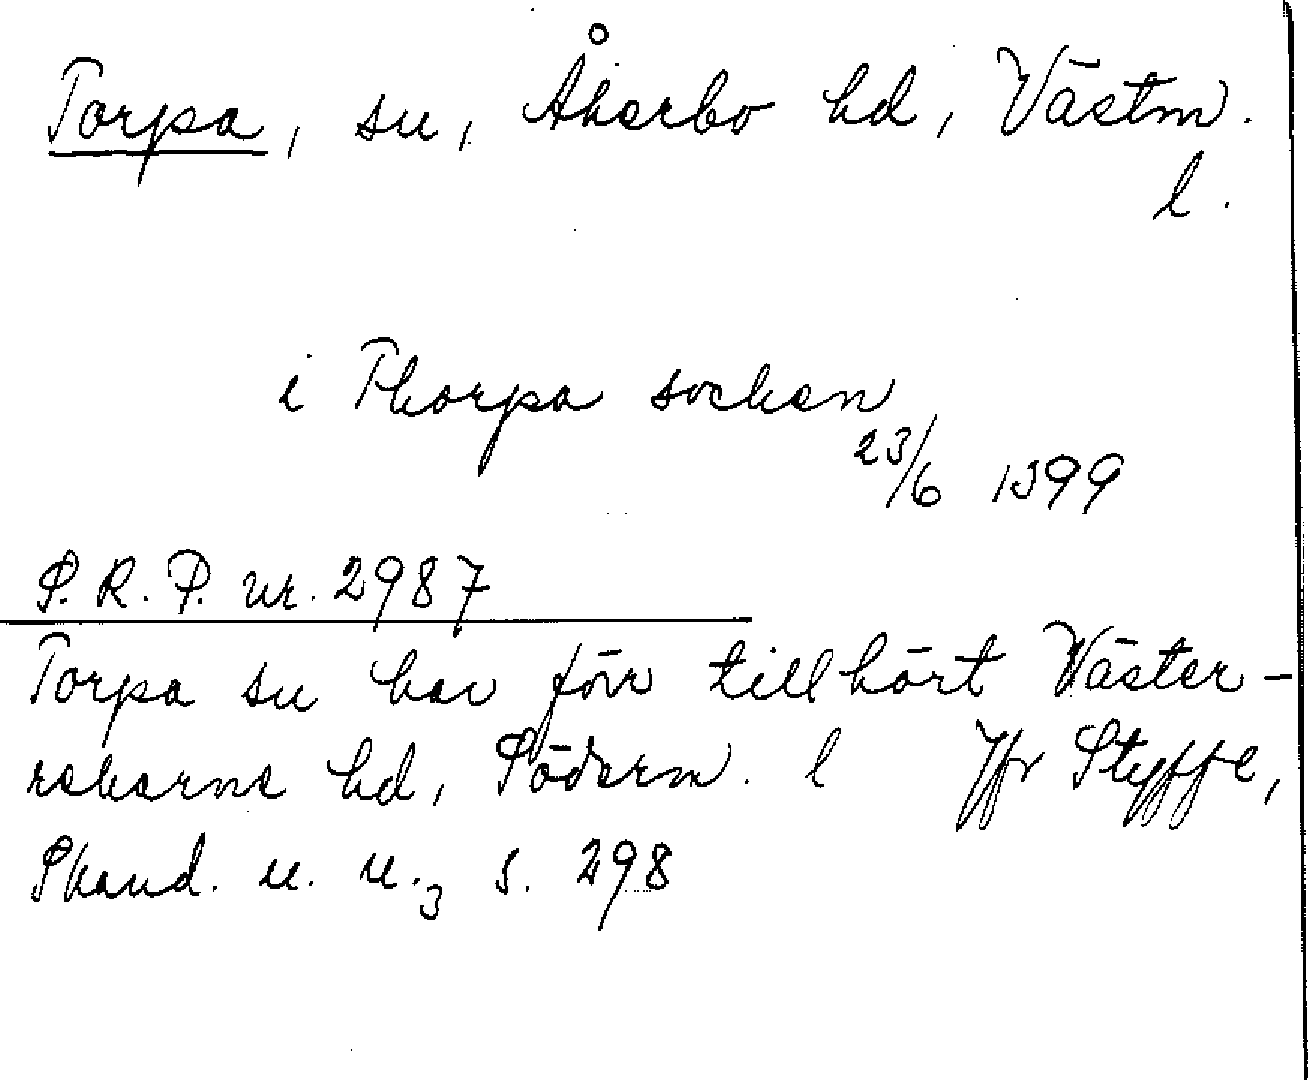 Torpa, sn, Åkerbo hd, Västm.
l.
i Thorpa socken
23/6 1399
S.R.P. nr. 2987
Torpa sn har förr tillhört Väster-
rekarne hd, Söderm. l Jfr Styffe,
Skand. u. u.3 s. 298